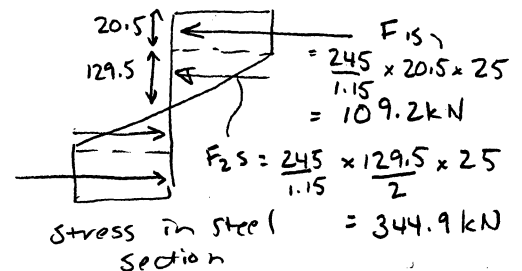 20.5
129.5
F1s
= 245/1.15 × 20.5 × 25
= 109.2kN
F2s = 245/1.15 × 129.5/2 × 25
= 344.9kN
stress in steel
section